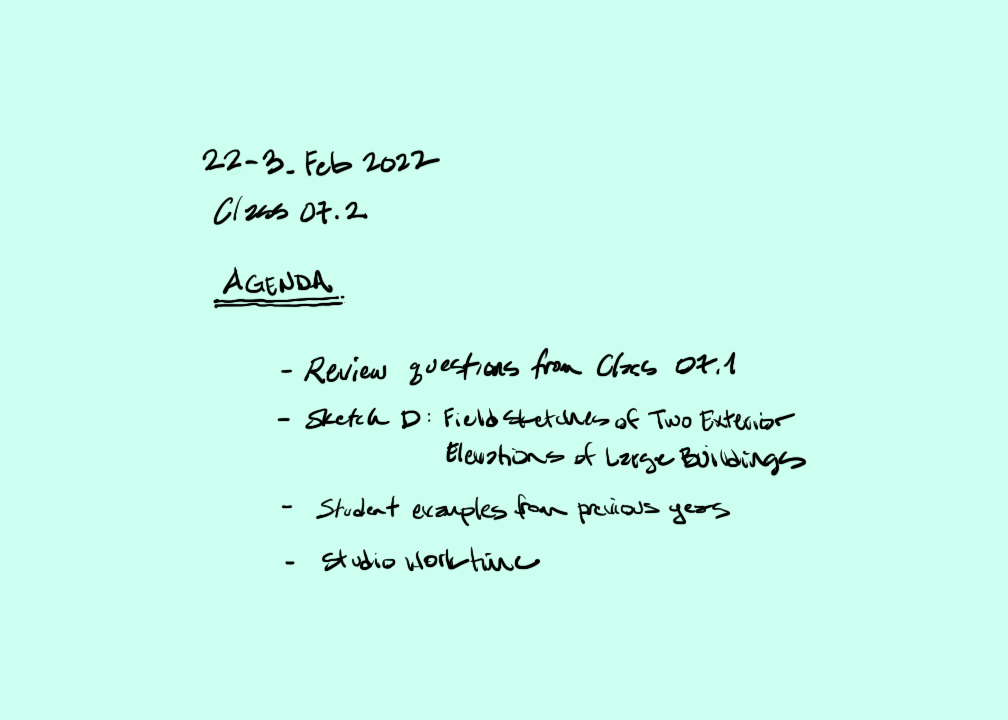 22-3_Feb 2022
Class 07.2
AGENDA
- Review questions from Class 07.1
- Sketch D: Field Sketches of Two Exterior
Elevations of Large Buildings
- Student examples from previous years
- Studio Work time